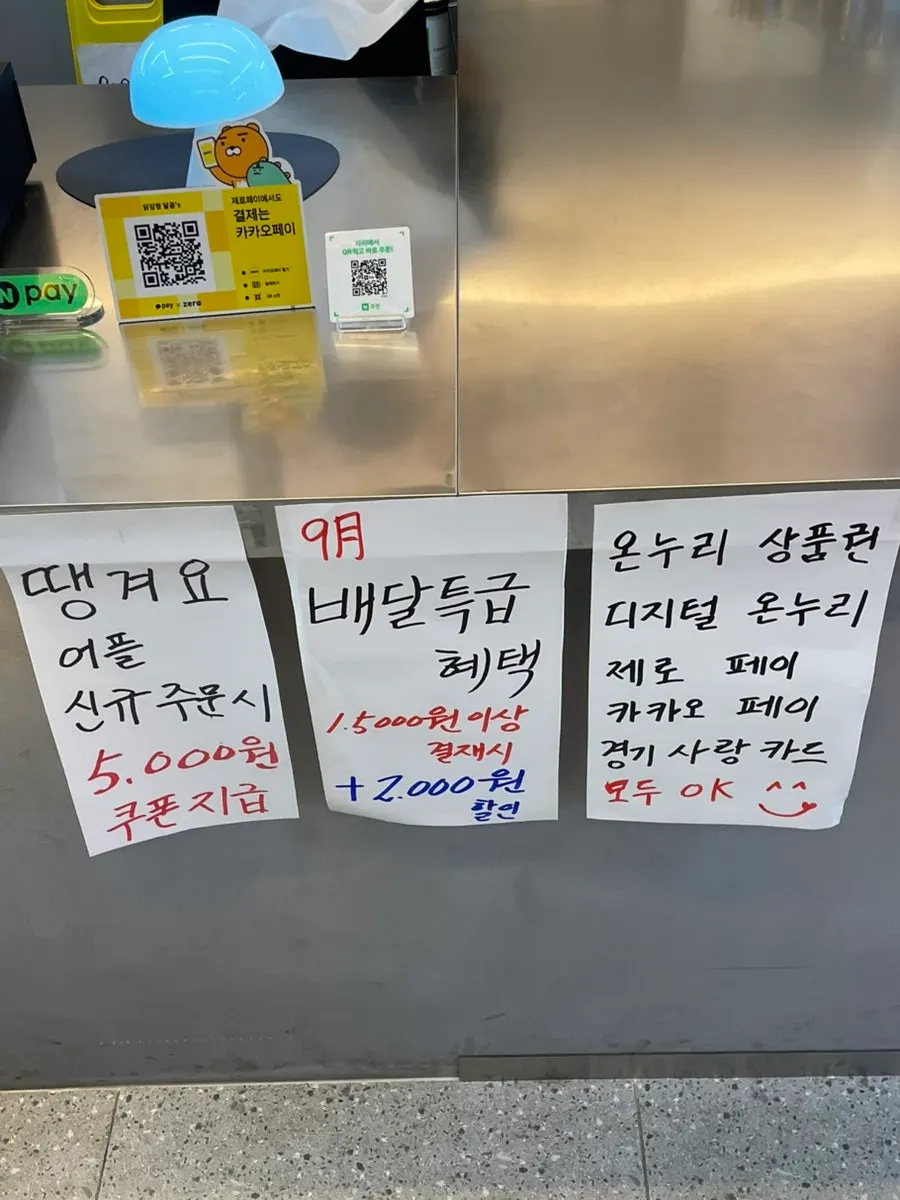 N pay
닭강정 달콤's
제로페이에서도
결제는
카카오페이
pay × zero
자리에서
QR찍고 바로 주문!
N 주문
땡겨요
어플
신규 주문시
5.000원
쿠폰지급
9月
배달특급
혜택
1.5000원 이상
결재시
+2.000원
할인
온누리 상품권
디지털 온누리
제로 페이
카카오 페이
경기 사랑 카드
모두 OK